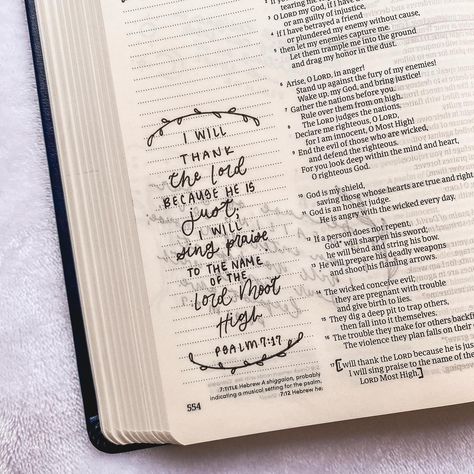 I WILL
THANK
the Lord
BECAUSE HE IS
just;
I WILL
sing praise
TO THE NAME
OF THE
Lord Most
High
PSALM 7:17
7:TITLE Hebrew A shiggaion, probably
indicating a musical setting for the psalm.
7:12 Hebrew he;
554
3 O LORD my God, if I have
or am guilty of injustice,
4 if I have betrayed a friend
or plundered my enemy without cause,
5 then let my enemies capture me.
Let them trample me into the ground
and drag my honor in the dust.
6 Arise, O LORD, in anger!
Stand up against the fury of my enemies!
Wake up, my God, and bring justice!
7 Gather the nations before you.
Rule over them from on high.
8 The LORD judges the nations.
Declare me righteous, O LORD,
for I am innocent, O Most High!
9 End the evil of those who are wicked,
and defend the righteous.
For you look deep within the mind and heart,
O righteous God.
10 God is my shield,
saving those whose hearts are true and right.
11 God is an honest judge.
He is angry with the wicked every day.
12 If a person does not repent,
God* will sharpen his sword;
he will bend and string his bow.
13 He will prepare his deadly weapons
and shoot his flaming arrows.
14 The wicked conceive evil;
they are pregnant with trouble
and give birth to lies.
15 They dig a deep pit to trap others,
then fall into it themselves.
16 The trouble they make for others backfires
The violence they plan falls on their
17 I will thank the LORD because he is just
I will sing praise to the name of the
LORD Most High.